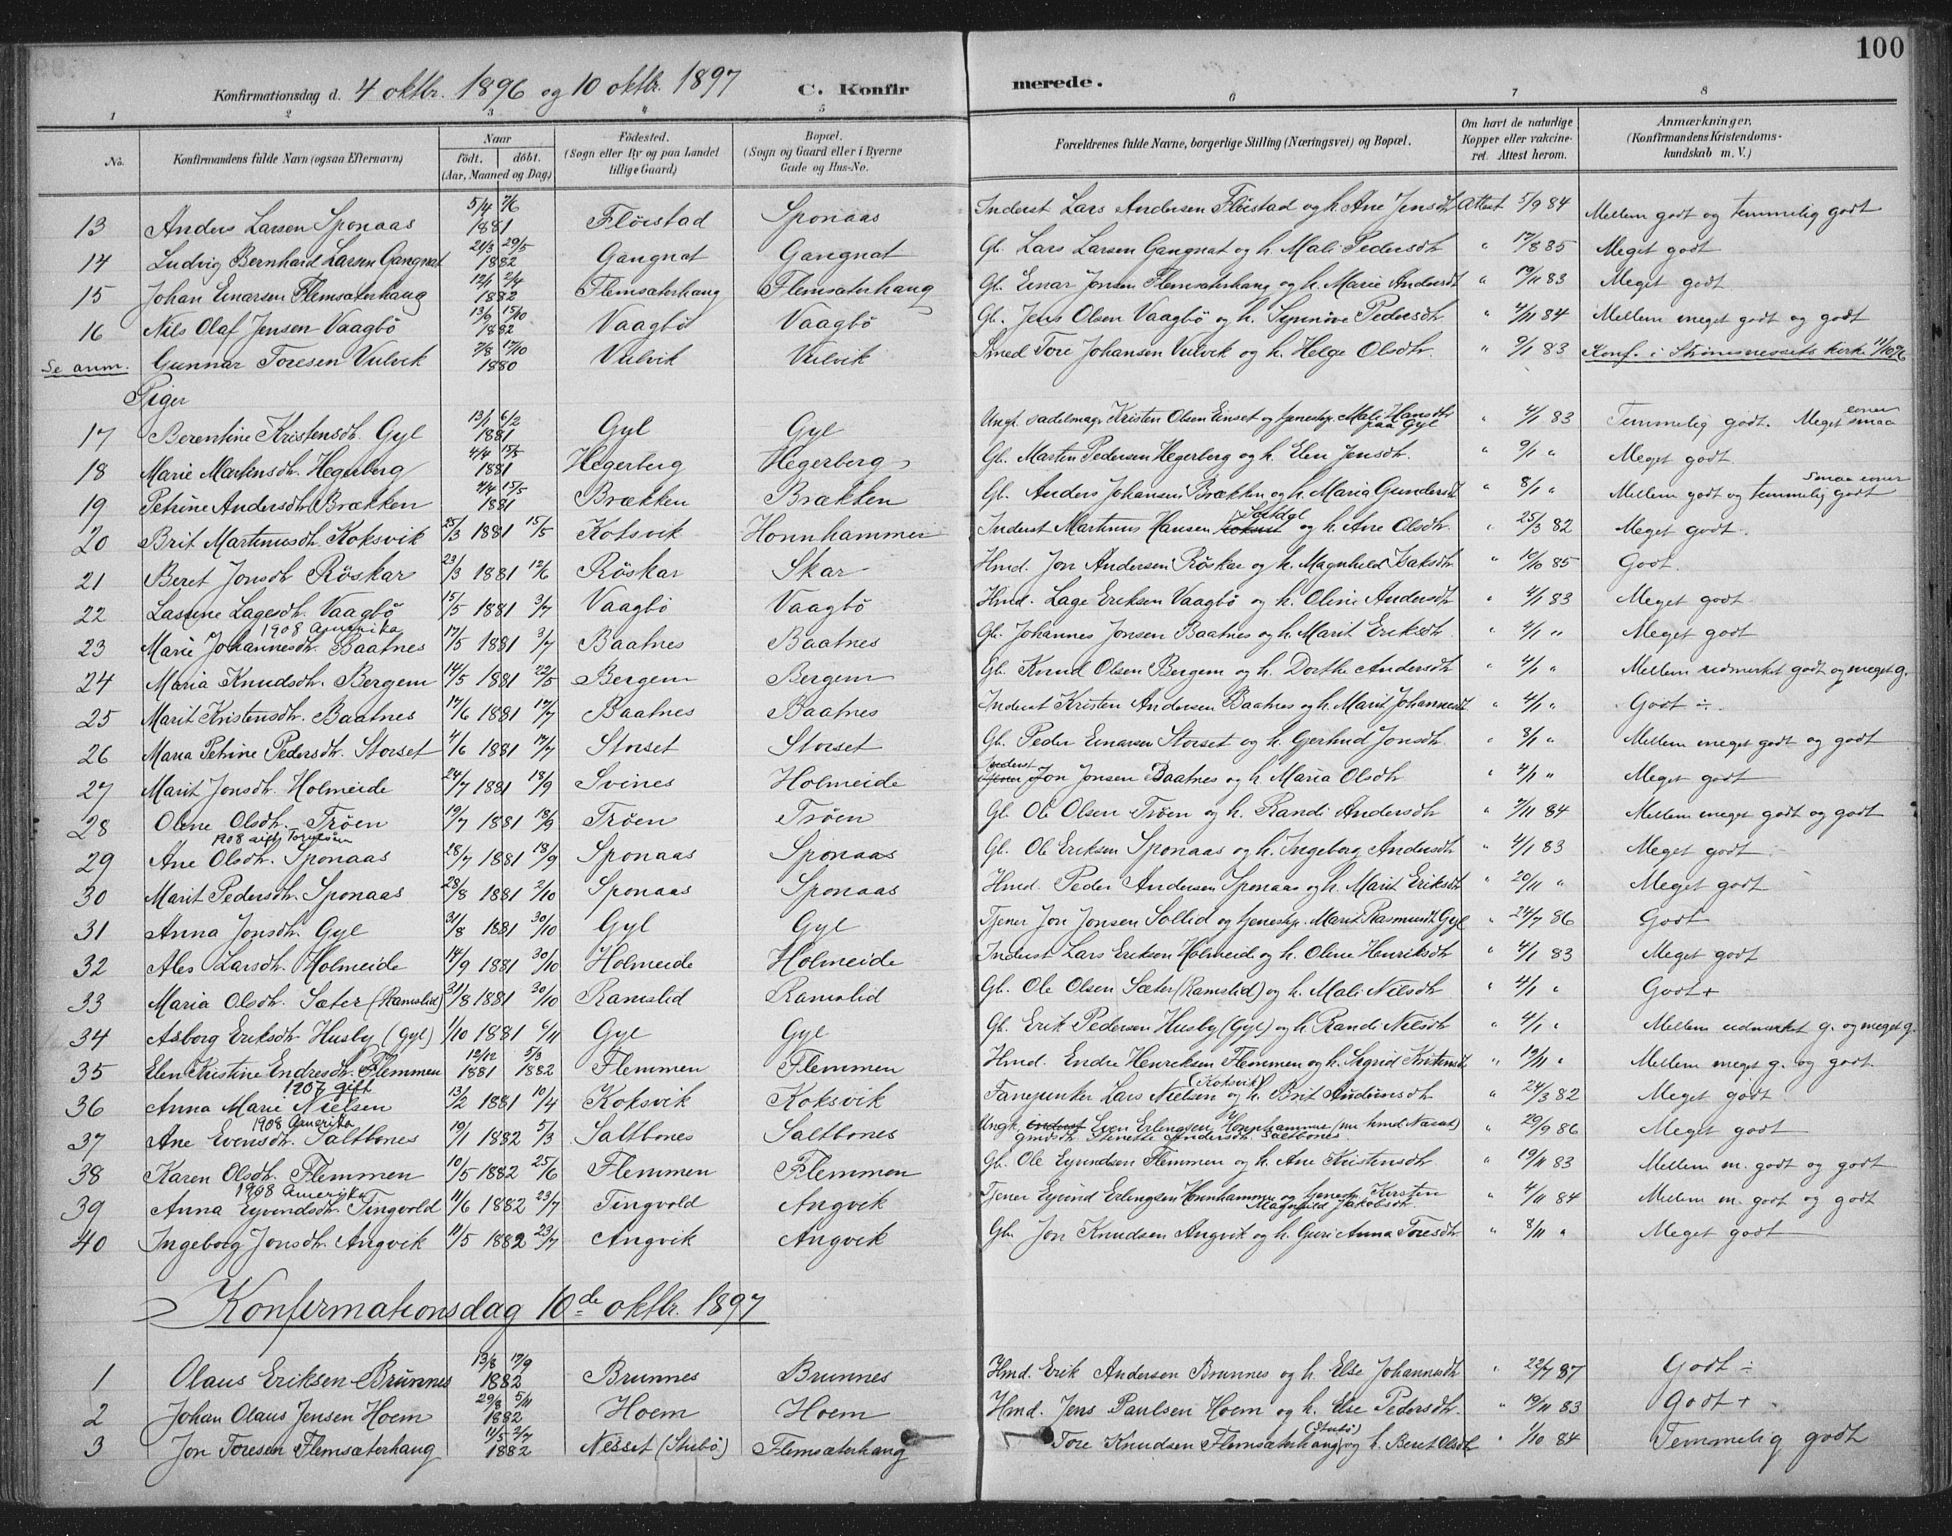 100
Konfirmationsdag d. 4 oktbr. 1896 og 10 oktbr. 1897 C. Konfirmerede.
1 2 3 4 5 6 7 8
No. Konfirmandens fulde Navn (ogsaa Efternavn) Naar födt. döbt. (Aar, Maaned og Dag) Födested. (Sogn eller By og paa Landet tillige Gaard) Bopæl. (Sogn og Gaard eller i Byerne Gade og Hus-No. Forældrenes fulde Navne, borgerlige Stilling (Næringsvei) og Bopæl. Om havt de naturlige Kopper eller vakcineret. Attest herom. Anmærkninger. (Konfirmandens Kristendomskundskab m. V.)
13 Anders Larsen Sponaas 5/4 7/6 1881 Fløistad Sponaas Inderst Lars Andersen Fløistad og h. Ane Jensdtr Attest 5/9 84 Mellem godt og temmelig godt
14 Ludvig Bernhard Larsen Gangnat 21/3 29/5 1882 Gangnat Gangnat Gb. Lars Larsen Gangnat og h. Mali Pedersdtr " 17/8 85 Meget godt
15 Johan Einarsen Flemsæterhaug 12/1 2/4 1882 Flemsæterhaug Flemsæterhaug Gb. Einar Jonsen Flemsæterhaug og h. Marie Andersdt " 19/11 83 Meget godt
16 Nils Olaf Jensen Vaagbö 13/9 15/10 1882 Vaagbö Vaagbö Gb. Jens Olsen Vaagbö og h. Synnöve Pedersdtr " 4/11 84 Mellem meget godt og godt
Se anm. Gunnar Toresen Vulvik 7/8 17/10 1880 Vulvik Vulvik Smed Tore Johansen Vulvik og h. Helge Olsdtr. " 9/1 83 Konf. i Strømsnessets kirke 11/10 96
Piger
17 Berentine Kristensdtr. Gyl 13/1 6/2 1881 Gyl Gyl Ungk. sadelmag. Kristen Olsen Einset og tjenestep. Mali Hansdtr paa Gyl " 4/1 83 Temmelig godt. Meget smaa evner
18 Marie Martensdtr. Hegerberg 4/4 15/5 1881 Hegerberg Hegerberg Gb. Marten Pedersen Hegerberg og h. Elen Jensdtr. " 9/1 " Meget godt
19 Petrine Andersdtr. Brækken 4/4 15/5 1881 Brækken Brækken Gb. Anders Johansen Brækken og h. Maria Gundersdt " 8/1 " Mellem godt og temmelig godt smaa evner
20 Brit Martinusdtr. Koksvik 25/3 1881 15/5 Koksvik Honnhammer Inderst Martinus Hansen og h. Ane Olsdtr. " 25/3 82 Meget godt.
21 Beret Jonsdtr Röskar 23/3 1881 12/6 Röskar Skar Hmd. Jon Andersen Röskar og h. Magnhild Isaksdtr. " 10/10 85 Godt.
22 Lasine Lagesdtr. Vaagbö 15/5 1881 3/7 Vaagbö Vaagbö Hmd. Lage Eriksen Vaagbö og h. Oline Andersdtr " 4/1 83 Meget godt.
23 Marie Johannesdtr. Baatnes 1908 Amerika 17/5 1881 3/7 Baatnes Baatnes Gb. Johannes Jonsen Baatnes og h. Marit Eriksdtr. " 4/1 " Meget godt
24 Maria Knudsdtr. Bergem 14/5 1881 22/5 Bergem Bergem Gb. Knud Olsen Bergem og h. Dorthe Andersdtr " 4/1 " Mellem udmerket godt og meget g.
25 Marit Kristensdtr. Baatnes 17/6 1881 17/7 Baatnes Baatnes Inderst Kristen Andersen Baatnes og h. Marit Johannesdt " 4/1 " Godt ÷
26 Maria Petrine Pedersdtr. Storset 4/6 1881 17/7 Storset Storset Gb. Peder Einarsen Storset og h. Gertrud Jonsdtr. " 8/1 " Mellem meget godt og godt
27 Marit Jonsdtr. Holmeide 24/7 1881 18/9 Svines Holmeide Inderst Jon Jonsen Baatnes og h. Maria Olsdtr. " 4/1 " Meget godt
28 Oline Olsdtr. Tröen 19/7 1881 18/9 Tröen Tröen Gb. Ole Olsen Tröen og h. Randi Andersdtr " 7/11 84 Mellem meget godt og godt
29 Ane Olsdtr. Sponaas 1908 28/7 1881 18/9 Sponaas Sponaas Gb. Ole Eriksen Sponaas og h. Ingeborg Andersdtr " 4/1 83 Meget godt.
30 Marit Pedersdtr. Sponaas 28/8 1881 2/10 Sponaas Sponaas Hmd. Peder Andersen Sponaas og h. Marit Eriksdt " 20/11 " Meget godt
31 Anna Jonsdtr. Gyl 31/8 1881 30/10 Gyl Gyl Tjener Jon Jonsen Sollid og tjenestep. Marit Rasmusdt. Gyl " 24/7 86 Godt
32 Ales Larsdtr. Holmeide 14/9 1881 30/10 Holmeide Holmeide Inderst Lars Eriksen Holmeid og h. Oline Henriksdtr " 4/1 83 Meget godt
33 Maria Olsdtr. Sæter (Ramslid) 31/8 1881 30/10 Ramslid Ramslid Gb. Ole Olsen Sæter (Ramslid) og h. Mali Nilsdtr " 4/1 " Godt +
34 Asborg Eriksdtr Husby (Gyl) 1/10 1881 6/11 Gyl Gyl Gb. Erik Pedersen Husby (Gyl) og h. Randi Nilsdtr " 4/1 " Mellem udmerket g. og meget g.
35 Elen Kristine Endresdtr. Flemmen 12/12 1881 5/3 1882 Flemmen Flemmen Hmd. Endre Henriksen Flemmen og h. Sigrid Kristensdt " 19/11 " Mellem meget g. og godt.
36 Anna Marie Nielsen 1907 gift 13/2 1881 10/4 Koksvik Koksvik Fanejunker Lars Nielsen (Koksvik) og h. Brit Andersdtr " 24/3 82 Meget godt
37 Ane Evensdtr. Saltbones 1908 Amerika 19/1 1882 5/3 Saltbones Saltbones Ungk. inderst Even Erlingsen Honnhammer (nu hmd Naast) gmdsdtr. Andersdtr. Saltbones " 20/9 86 Meget godt
38 Karen Olsdtr. Flemmen 10/5 1882 25/6 Flemmen Flemmen Gb. Ole Eyvindsen Flemmen og h. Ane Kristensdtr " 19/11 83 Mellem m. godt og godt
39 Anna Eyvindsdtr. Tingvold 1908 Amerika 11/6 1882 23/7 Tingvold Angvik Tjener Eyvind Erlingsen Honnhammer og tjenestp. Kirsten Magnhild Jakobsdtr. " 4/11 84 Mellem m. godt og godt
40 Ingeborg Jonsdtr. Angvik 11/5 1882 23/7 Angvik Angvik Gb. Jon Knudsen Angvik og h. Guri Anna Toresdtr " 8/11 " Meget godt
Konfirmationsdag 10de oktbr. 1897
1 Olaus Eriksen Brunnes 13/8 17/9 1882 Brunnes Brunnes Hmd. Erik Andersen Brunnes og h. Else Johannesdtr " 22/7 87 Godt ÷
2 Johan Olaus Jensen Hoem 29/8 5/11 1882 Hoem Hoem Hmd. Jens Paulsen Hoem og h. Else Pedersdtr. " 19/11 83 Godt +
3 Jon Toresen Flemsæterhaug 11/5 2/7 1882 Nesset (Stubö) Flemsæterhaug Tore Knudsen Flemsæterhaug (Stubö) og h. Beret Olsdt " 1/10 84 Temmelig godt